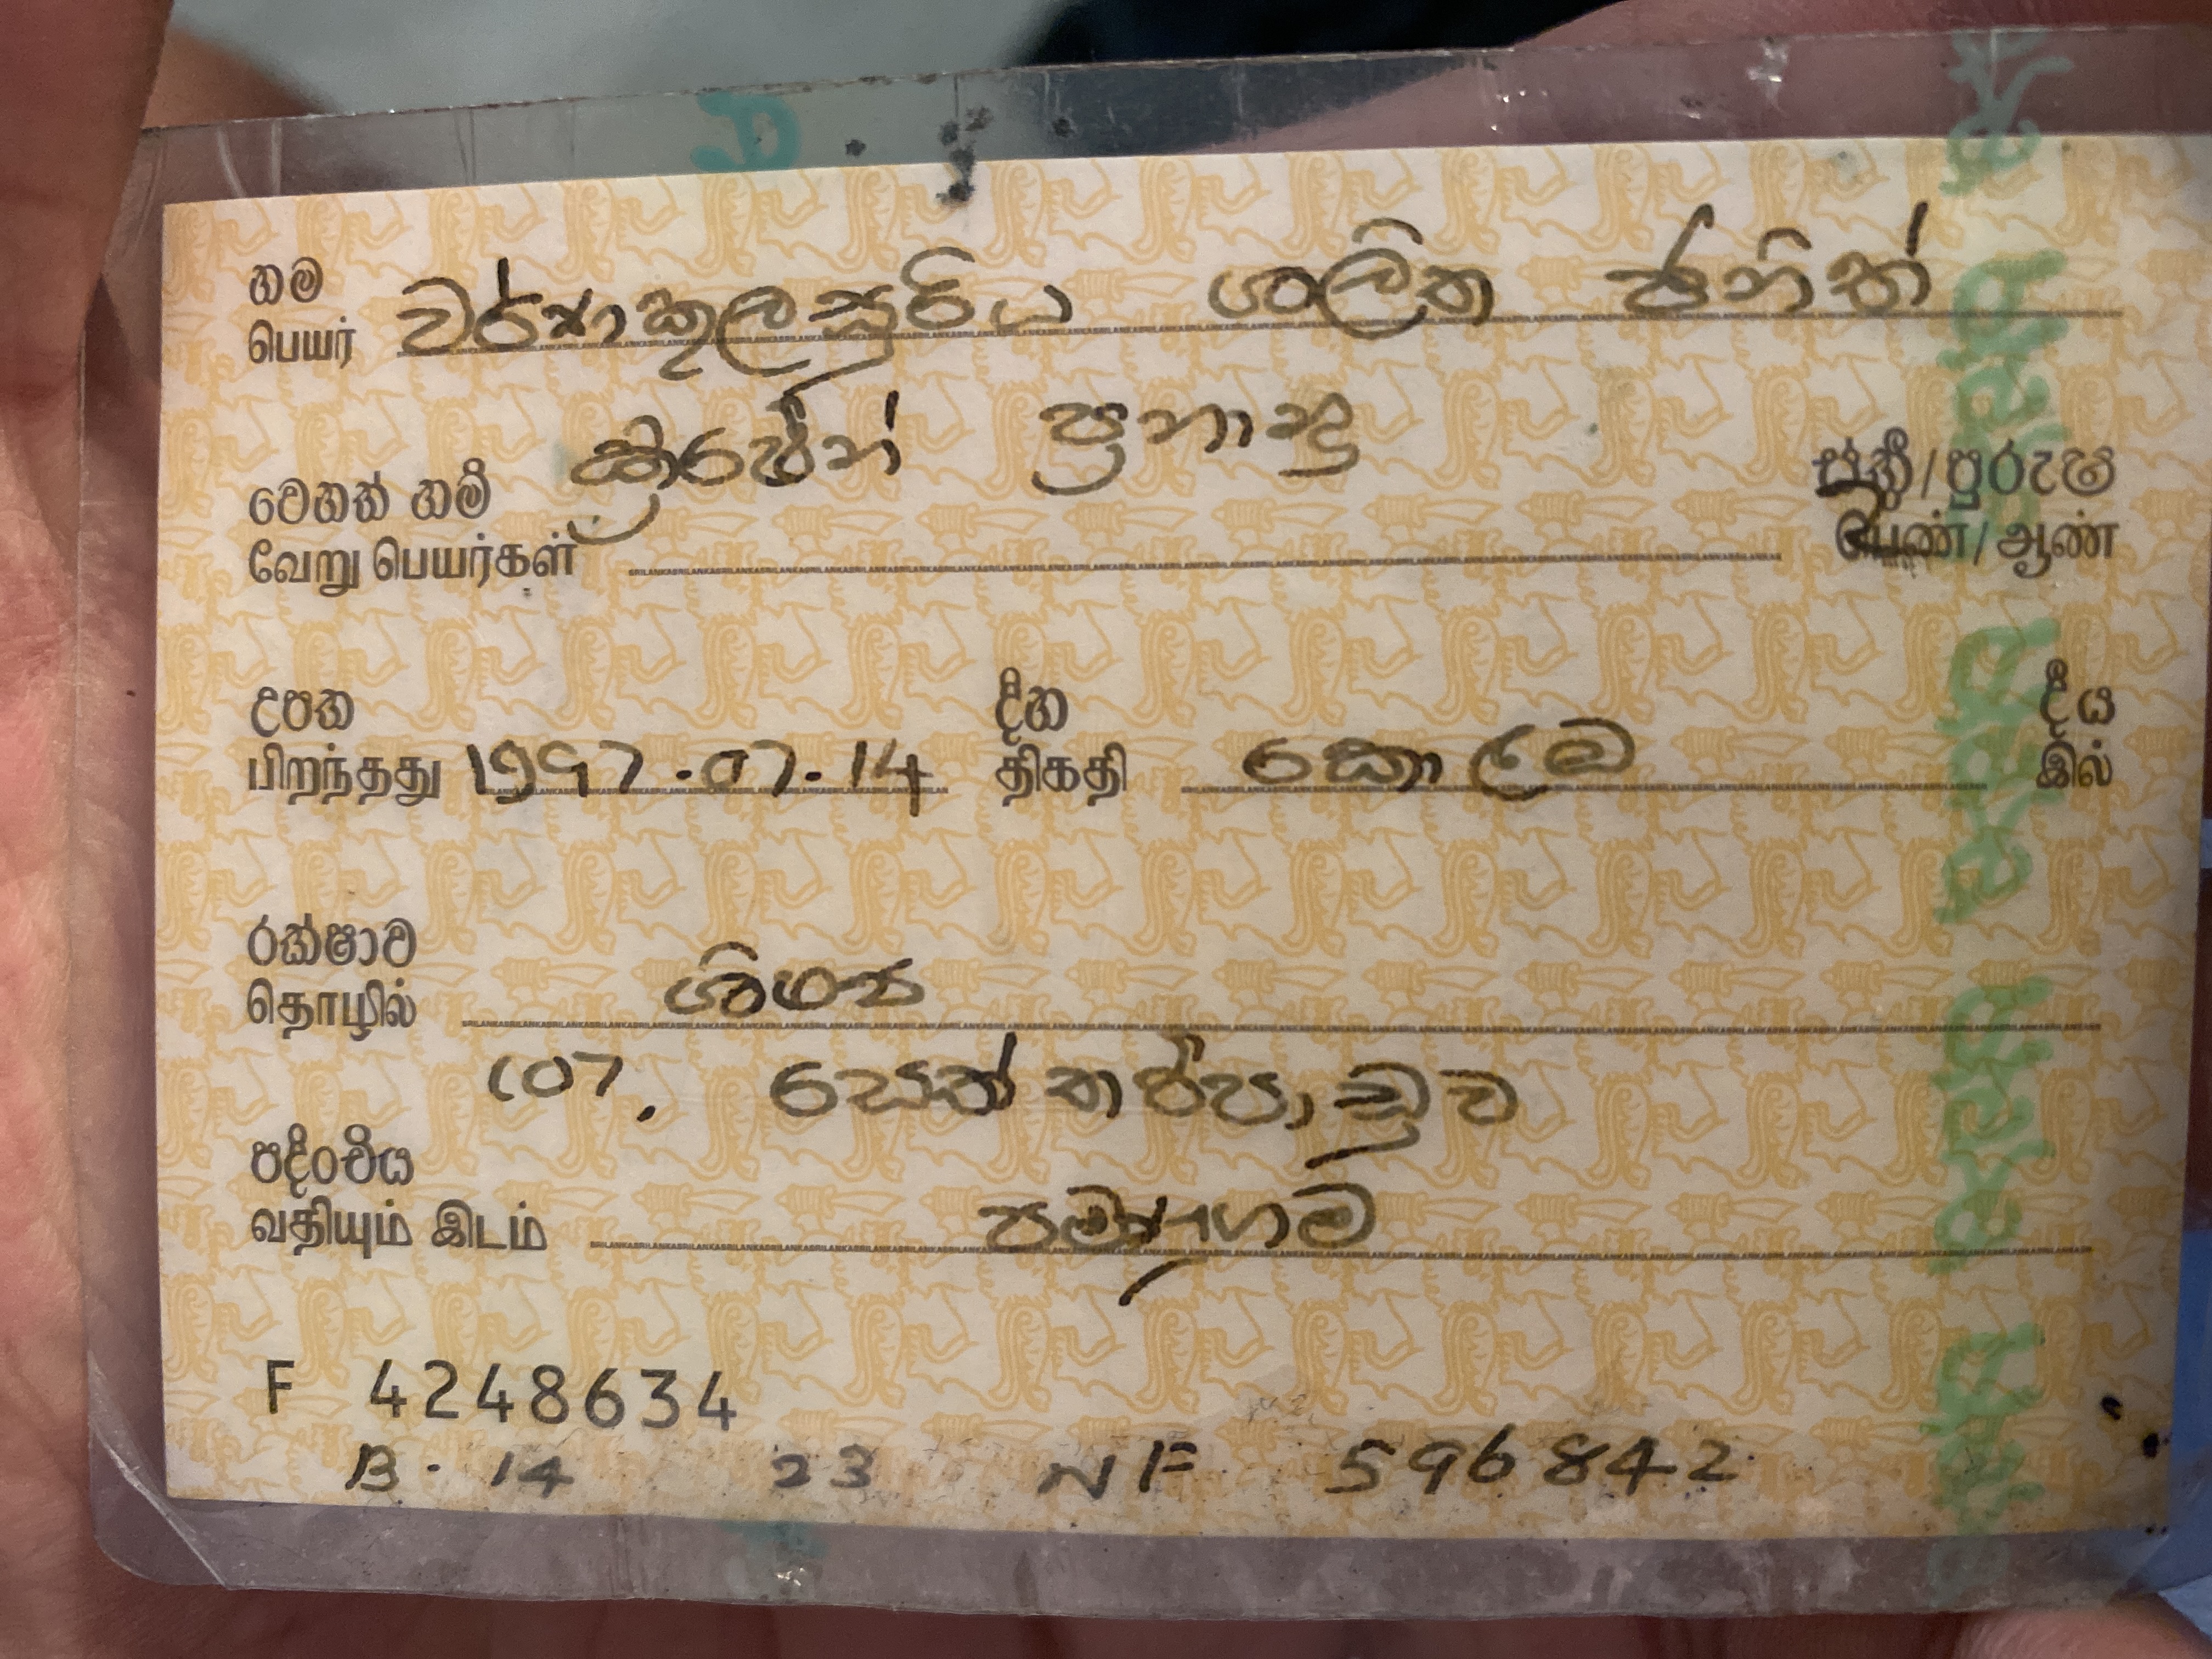 නම
பெயர் වර්ණකුලසූරිය ශලිත ජනිත්
ක්‍රිශේන් ප්‍රනාන්දු
වෙනත් නම්
வேறு பெயர்கள்
ස්ත්‍රී/පුරුෂ
பெண்/ஆண்
උපත දින දීය
பிறந்தது 1997.07.14 திகதி කොළඹ இல்
රක්ෂාව
தொழில் ශිෂ්‍ය
107. සෙත්තප්පාඩුව
පදිංචිය
வதியும் இடம் පමුණුගම
F 4248634
B. 14 23 NF 596842